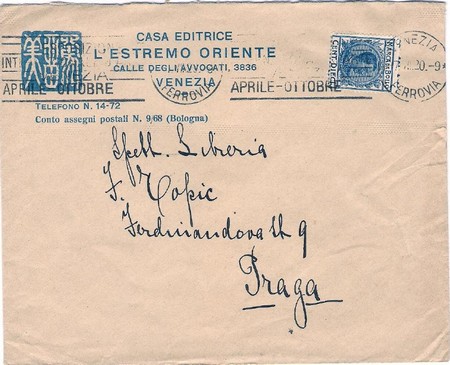 CASA EDITRICE
L'ESTREMO ORIENTE
CALLE DEGLI AVVOCATI, 3836
VENEZIA
TELEFONO N. 14-72
Conto assegni postali N. 9/68 (Bologna)
VENEZIA
APRILE-OTTOBRE
FERROVIA
APRILE-OTTOBRE
VENEZIA
20.-9
FERROVIA
Spett. Libreria
F. Topic
Ferdinandova tř 9
Praga